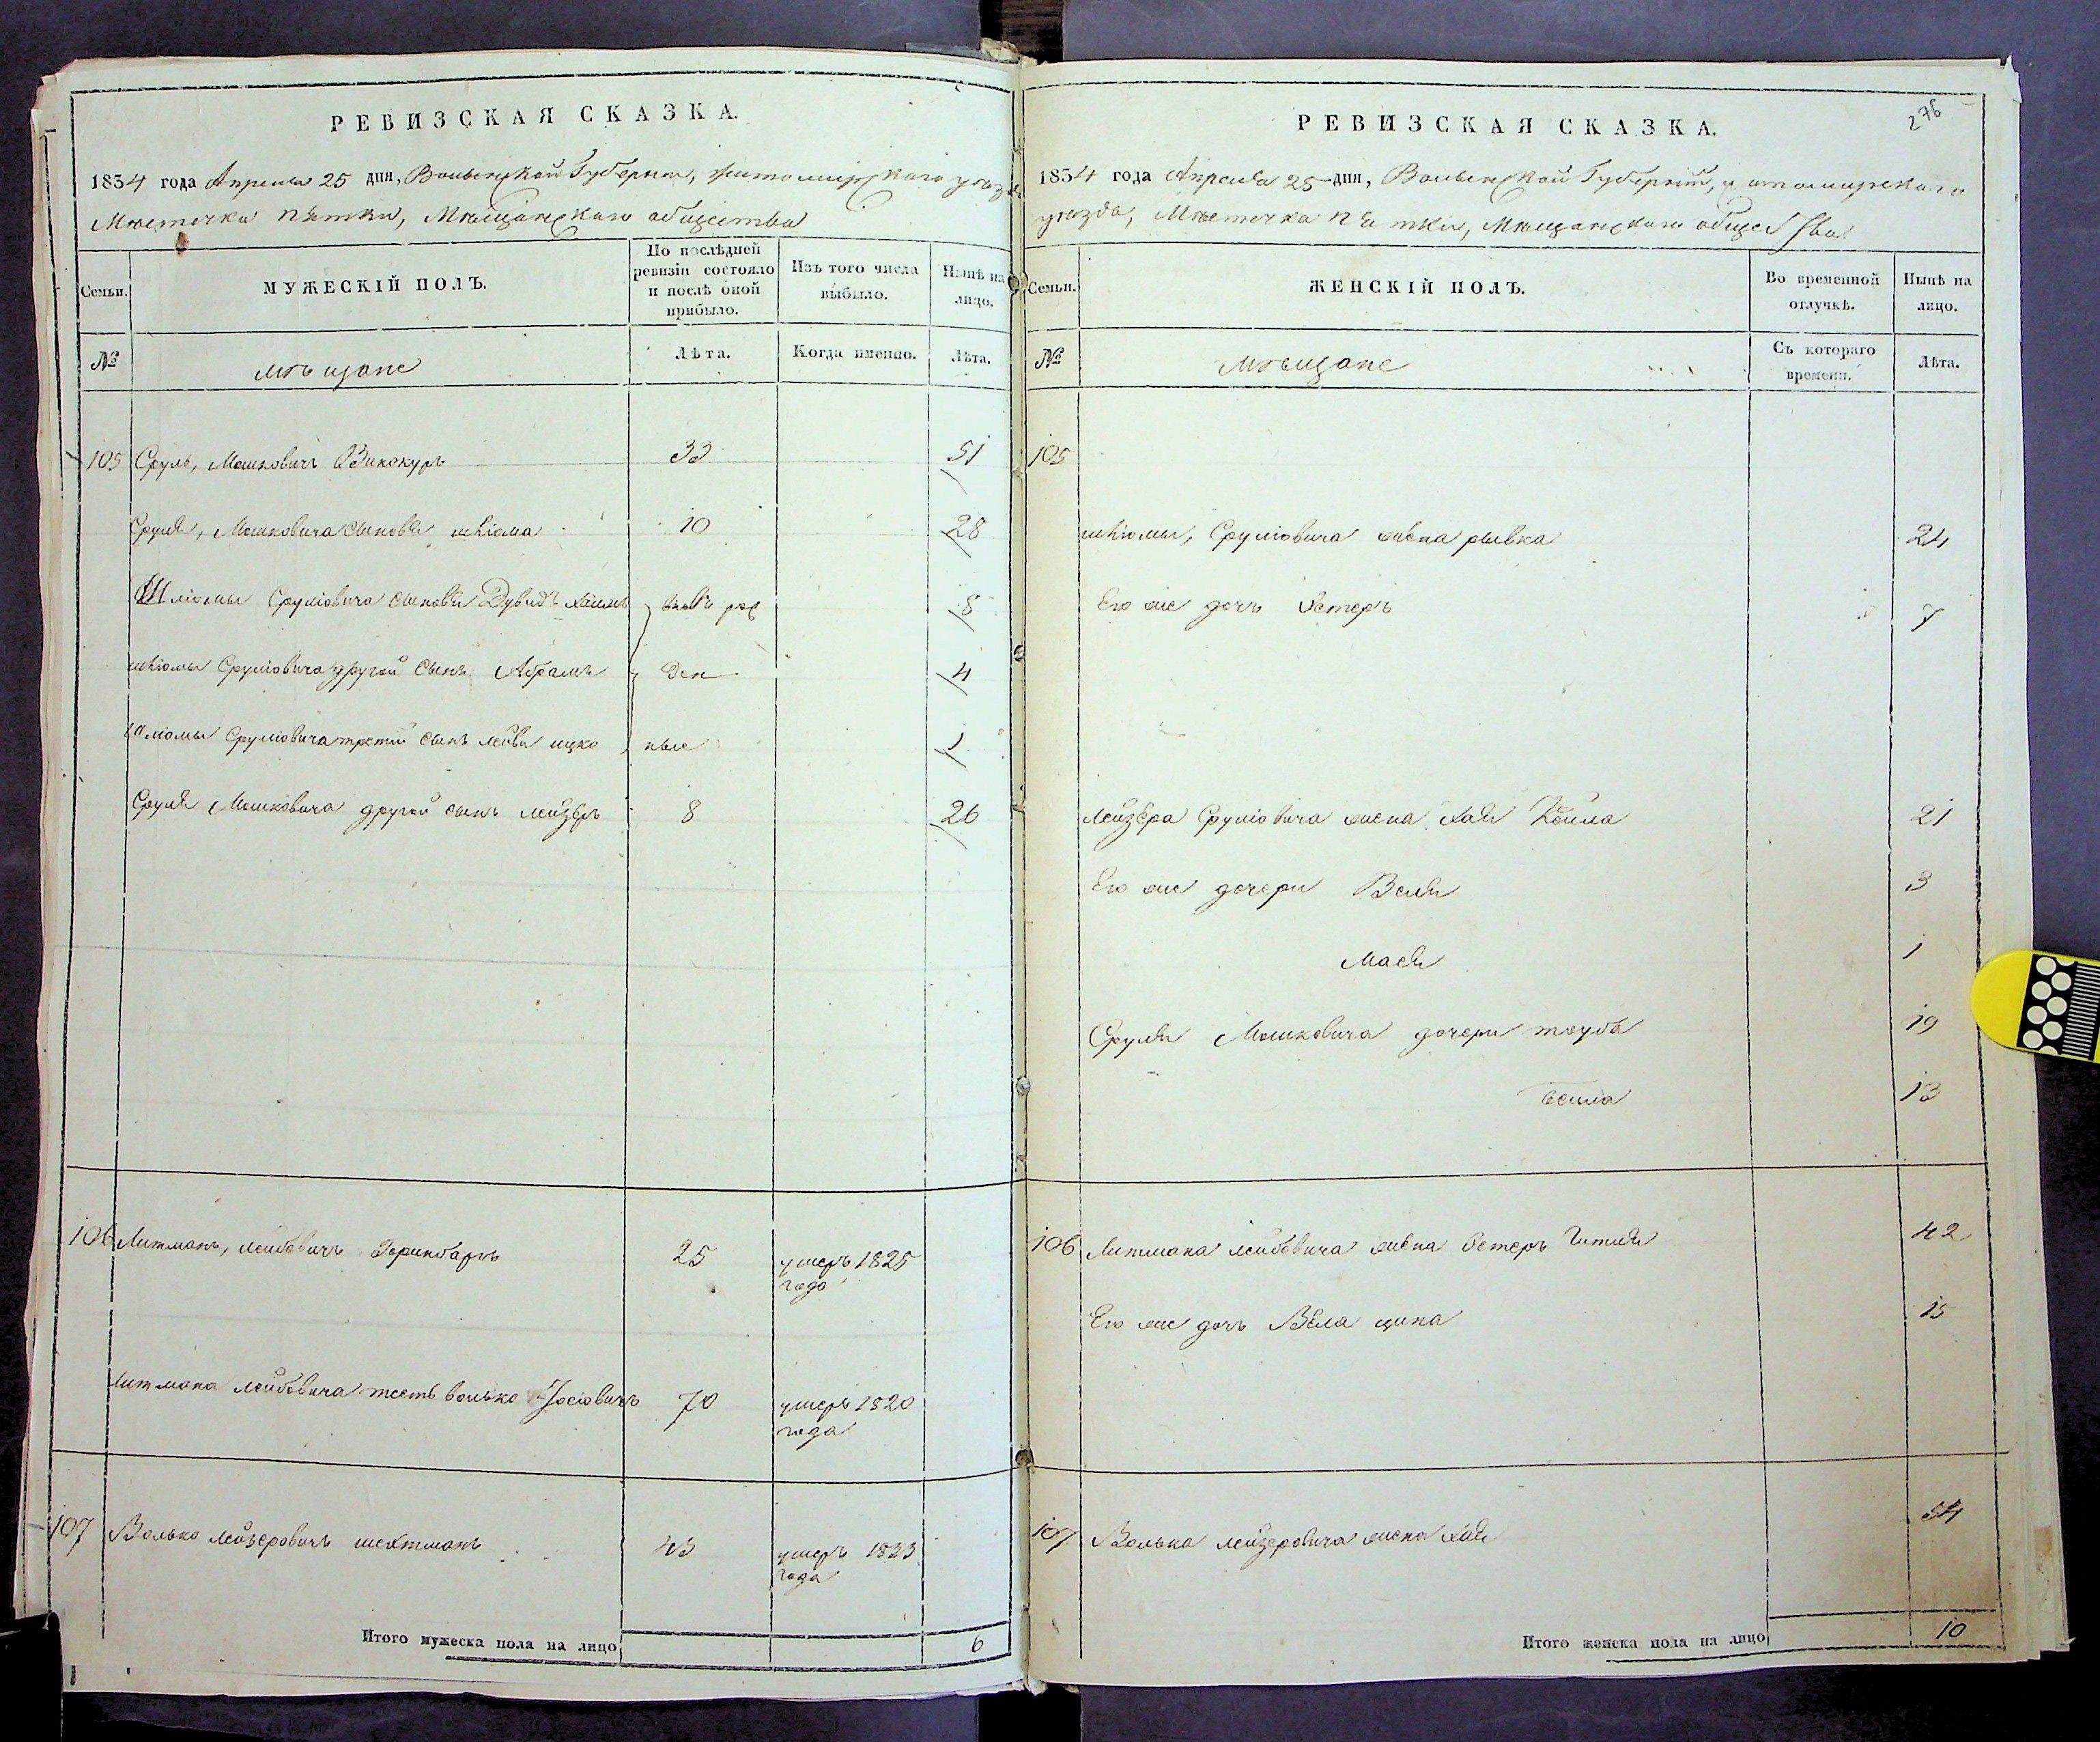 РЕВИЗСКАЯ СКАЗКА.
1834 года Апреля 25 дня, Волынской Губернии, Житомирского уезда
Мѣстечка Пятки, Мѣщанского общества
Семьи.
МУЖЕСКІЙ ПОЛЪ.
По послѣдней ревизіи состояло и послѣ оной прибыло.
Изъ того числа выбыло.
Нынѣ на лицо.
№
мѣщане
Лѣта.
Когда именно.
Лѣта.
105 Сруль, Мошковичъ Винокуръ 33 51
Сруля, Мошковича сыновья шліома 10 28
Шліомы Сруліовича сыновья Дувидъ Хаимъ вновь рож 8
шліомы Сруліовича другой сынъ Абрамъ ден 4
шліомы Сруліовича третій сынъ лейба ицко ные 1
Сруля Мошковича другой сынъ лейзеръ 8 26
106 Литманъ, лейбовичъ Горинбаргъ 25 умеръ 1825
года
литмана лейбовича тесть волько Иосіовичъ 70 умеръ 1820
года
107 Волько лейзеровичъ шехтманъ 43 умеръ 1823
года
Итого мужеска пола на лицо 6
276
РЕВИЗСКАЯ СКАЗКА.
1834 года Апреля 25 дня, Волынской Губерніи, Житомирского
уезда, Мѣстечка Пятки, Мѣщанского общества
Семьи.
ЖЕНСКІЙ ПОЛЪ.
Во временной отлучкѣ.
Нынѣ на лицо.
№
мѣщане
Съ котораго времени.
Лѣта.
105
шліомы, Сруліовича жена рывка 24
Его же дочь Эстеръ 7
лейзера Сруліовича жена Хая 21
Его же дочери Вася 3
Мася 1
Сруля Мошковича дочери тауба 19
бейла 13
106 Литмана лейбовича жена Эстеръ Гитля 42
Его же дочь Бела ципа 15
107 Волька лейзеровича жена Хая 54
Итого женска пола на лицо 10